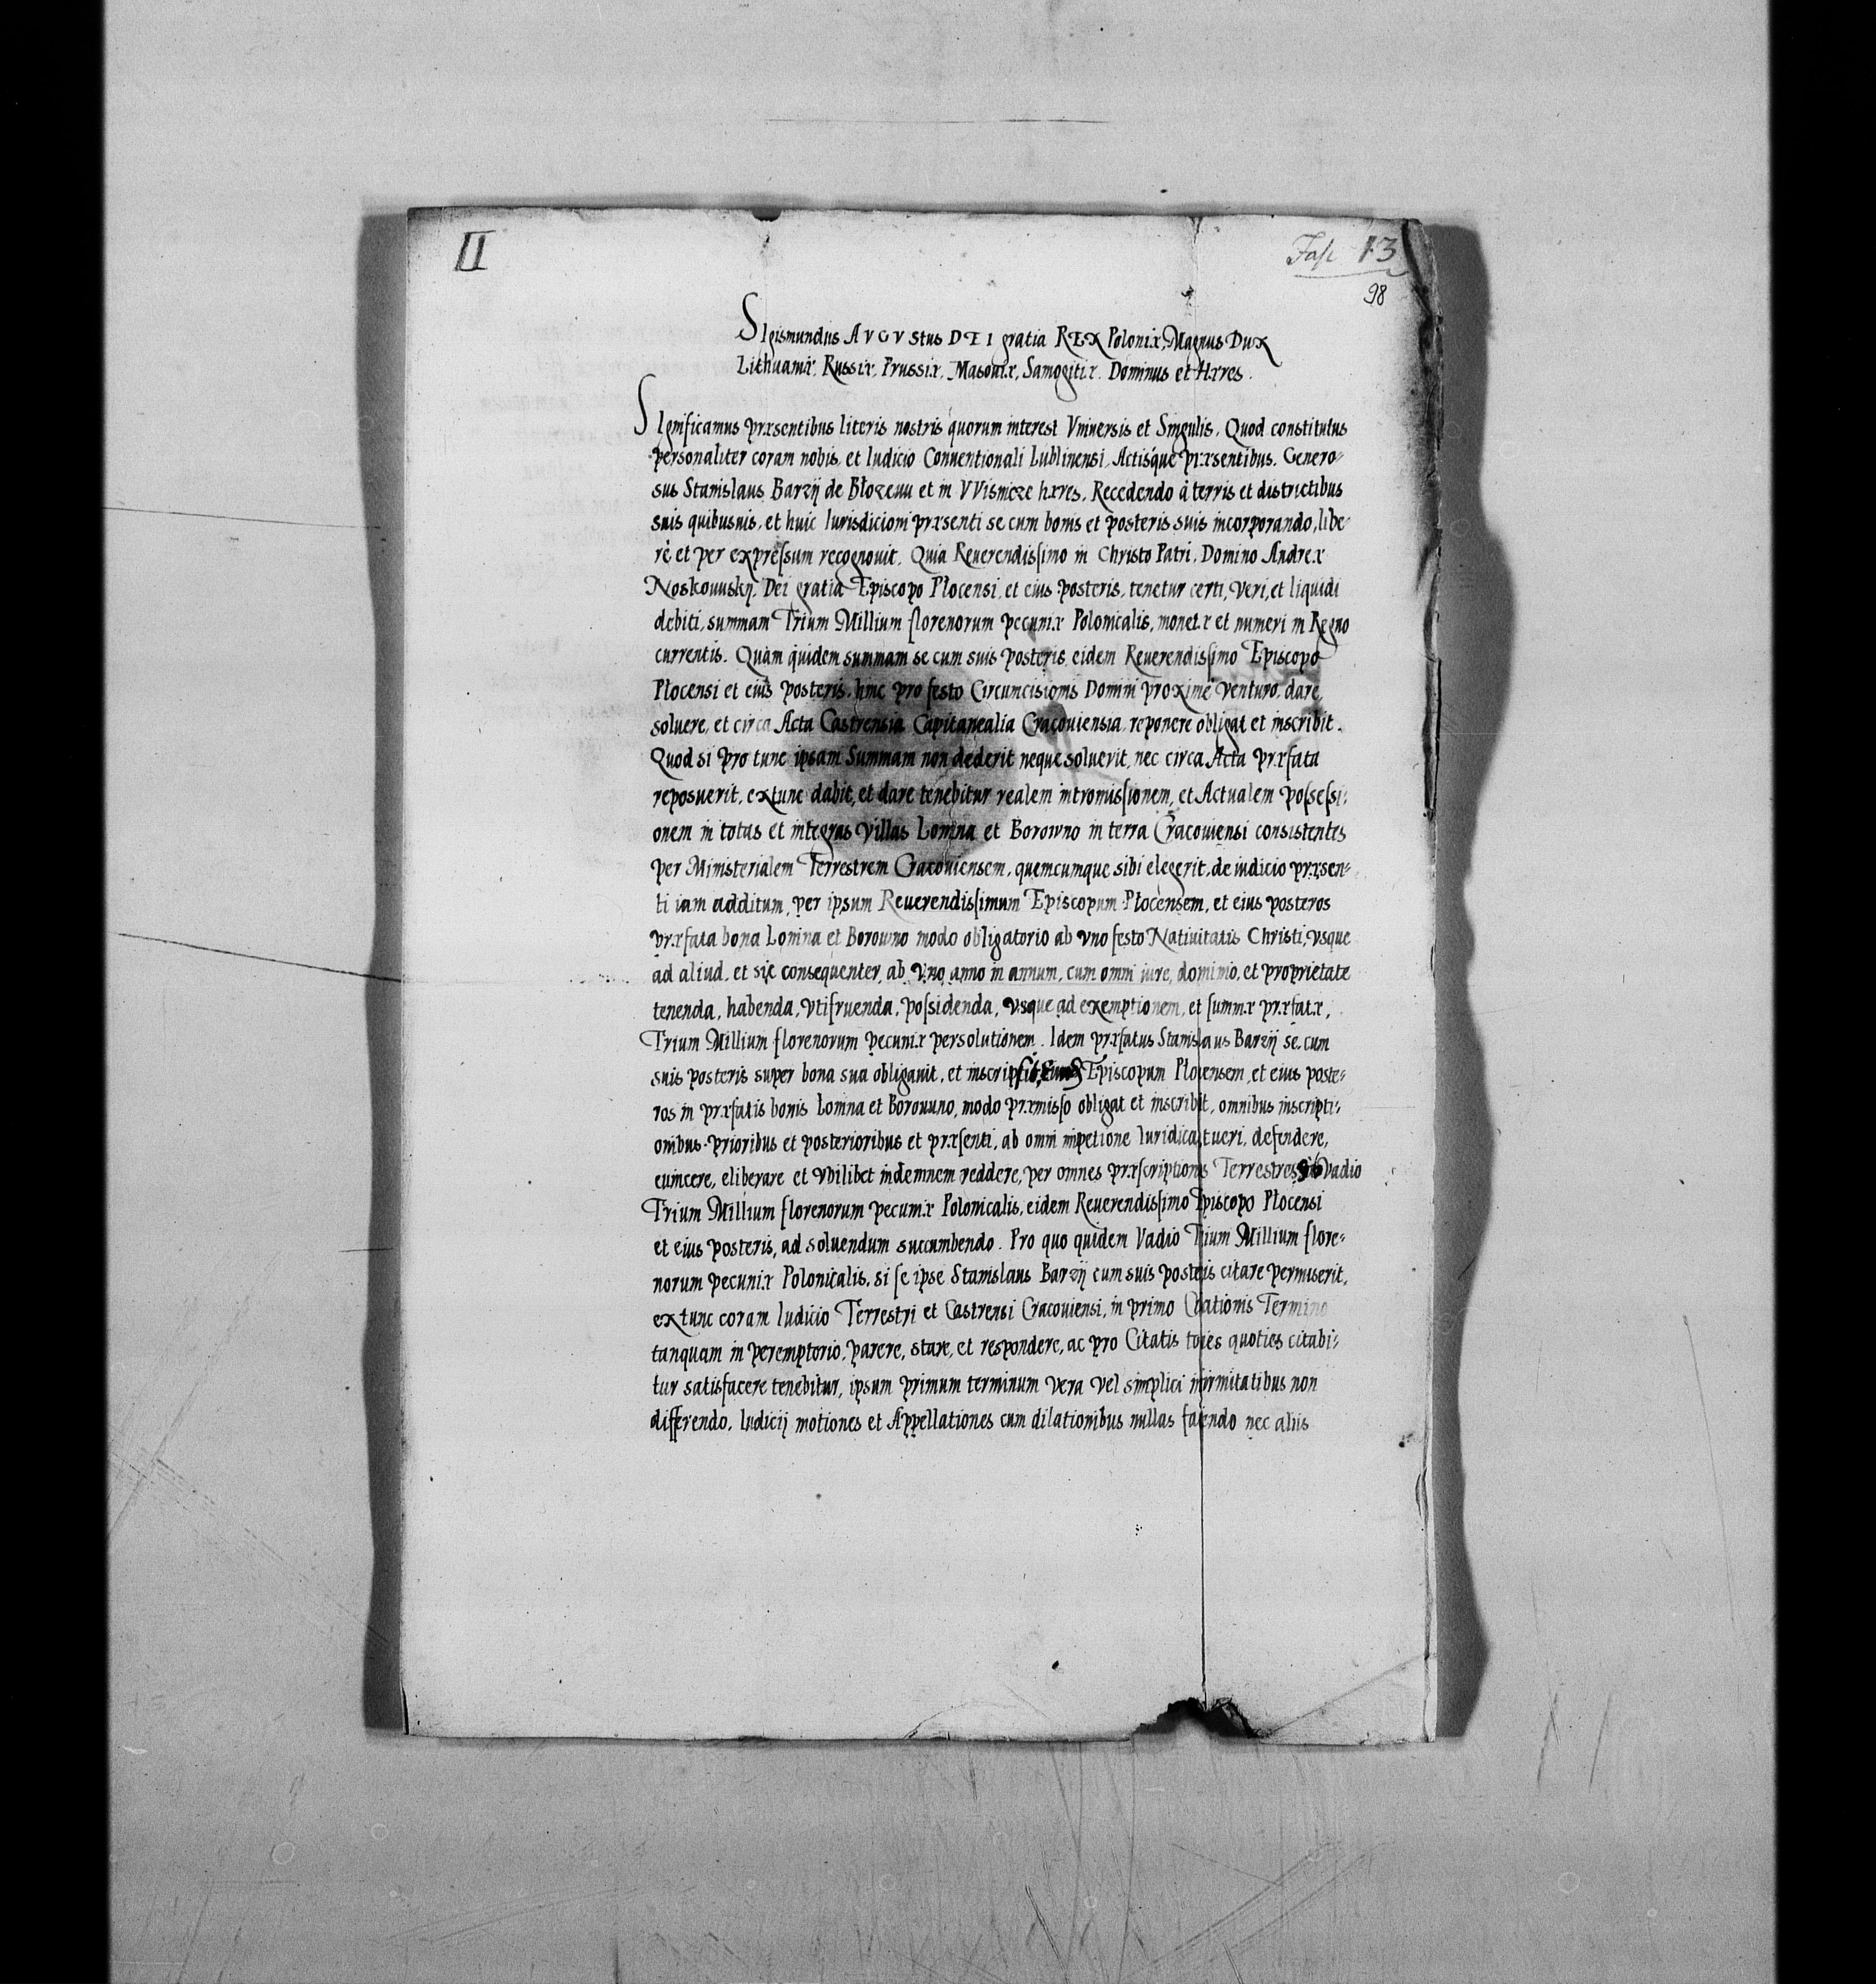 II
Fasc 13
98
SIgismundus AVGVstus DEI gratia REX Poloniæ, Magnus Dux
Lithuaniæ, Russiæ, Prussiæ, Masoniæ, Samogitiæ. Dominus et Hæres.
SIgnificamus præsentibus literis nostris quorum interest Vniuersis et Singulis. Quod constitutus
personaliter coram nobis, et Iudicio Conuentionali Lublinensi, Actisque præsentibus. Genero-
sus Stanislaus Barzij de Błozeuu et in VVisnicze hæres. Recedendo à terris et districtibus
suis quibusuis, et huic Iurisdicioni præsenti se cum bonis et posteris suis incorporando, libe-
rè et per expressum recognouit. Quia Reuerendissimo in Christo Patri, Domino Andreæ
Noskouuskij, Dei gratia Episcopo Płocensi, et eius posteris, tenetur certi, veri, et liquidi
debiti, summam Trium Millium florenorum pecuniæ Polonicalis, monetæ et numeri in Regno
currentis. Quam quidem summam se cum suis posteris, eidem Reuerendissimo Episcopo
Płocensi et eius posteris, hinc pro festo Circuncisionis Domini proximè venturo, dare,
soluere, et circa Acta Castrensia Capitanealia Cracouiensia, reponere obligat et inscribit.
Quod si pro tunc ipsam Summam non dederit neque soluerit, nec circa Acta præfata
reposuerit, extunc dabit, et dare tenebitur realem intromissionem, et Actualem possessi-
onem in totas et integras villas Lomna et Borowno in terra Cracouiensi consistentes
per Ministerialem Terrestrem Cracouiensem, quemcumque sibi elegerit, de iudicio præsen-
ti iam additum, per ipsum Reuerendissimum Episcopum Płocensem, et eius posteros
præfata bona Lomna et Borowno modo obligatorio ab vno festo Natiuitatis Christi, vsque
ad aliud, et sic consequenter, ab vno anno in annum, cum omni iure, dominio, et proprietate
tenenda, habenda, vtifruenda, possidenda, vsque ad exemptionem, et summæ præfatæ,
Trium Millium florenorum pecuniæ persolutionem. Idem præfatus Stanislaus Barzij se cum
suis posteris super bona sua obligauit, et inscripsit, Episcopum Plocensem, et eius poste-
ros in præfatis bonis Lomna et Borouuno, modo præmisso obligat et inscribit, omnibus inscripti-
onibus prioribus et posterioribus et præsenti, ab omni impetione Iuridica tueri, defendere,
euincere, eliberare et vbilibet indemnem reddere, per omnes præscriptionis Terrestres Vadio
Trium Millium florenorum pecuniæ Polonicalis, eidem Reuerendissimo Episcopo Płocensi
et eius posteris, ad soluendum succumbendo. Pro quo quidem Vadio Trium Millium flore-
norum pecuniæ Polonicalis, si se ipse Stanislaus Barzij cum suis posteris citare permiserit,
extunc coram Iudicio Terrestri et Castrensi Cracouiensi, in primo Citationis Termino
tanquam in peremptorio, parere, stare, et respondere, ac pro Citatis toties quoties citabi-
tur satisfacere tenebitur, ipsum primum terminum vera vel simplici infirmitatibus non
differendo. Iudicij motiones et Appellationes cum dilationibus nullas faciendo nec aliis